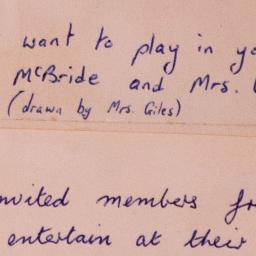 want to play in yo
McBride and Mrs.
(drawn by Mrs. Giles)
nvited members fr
entertain at their